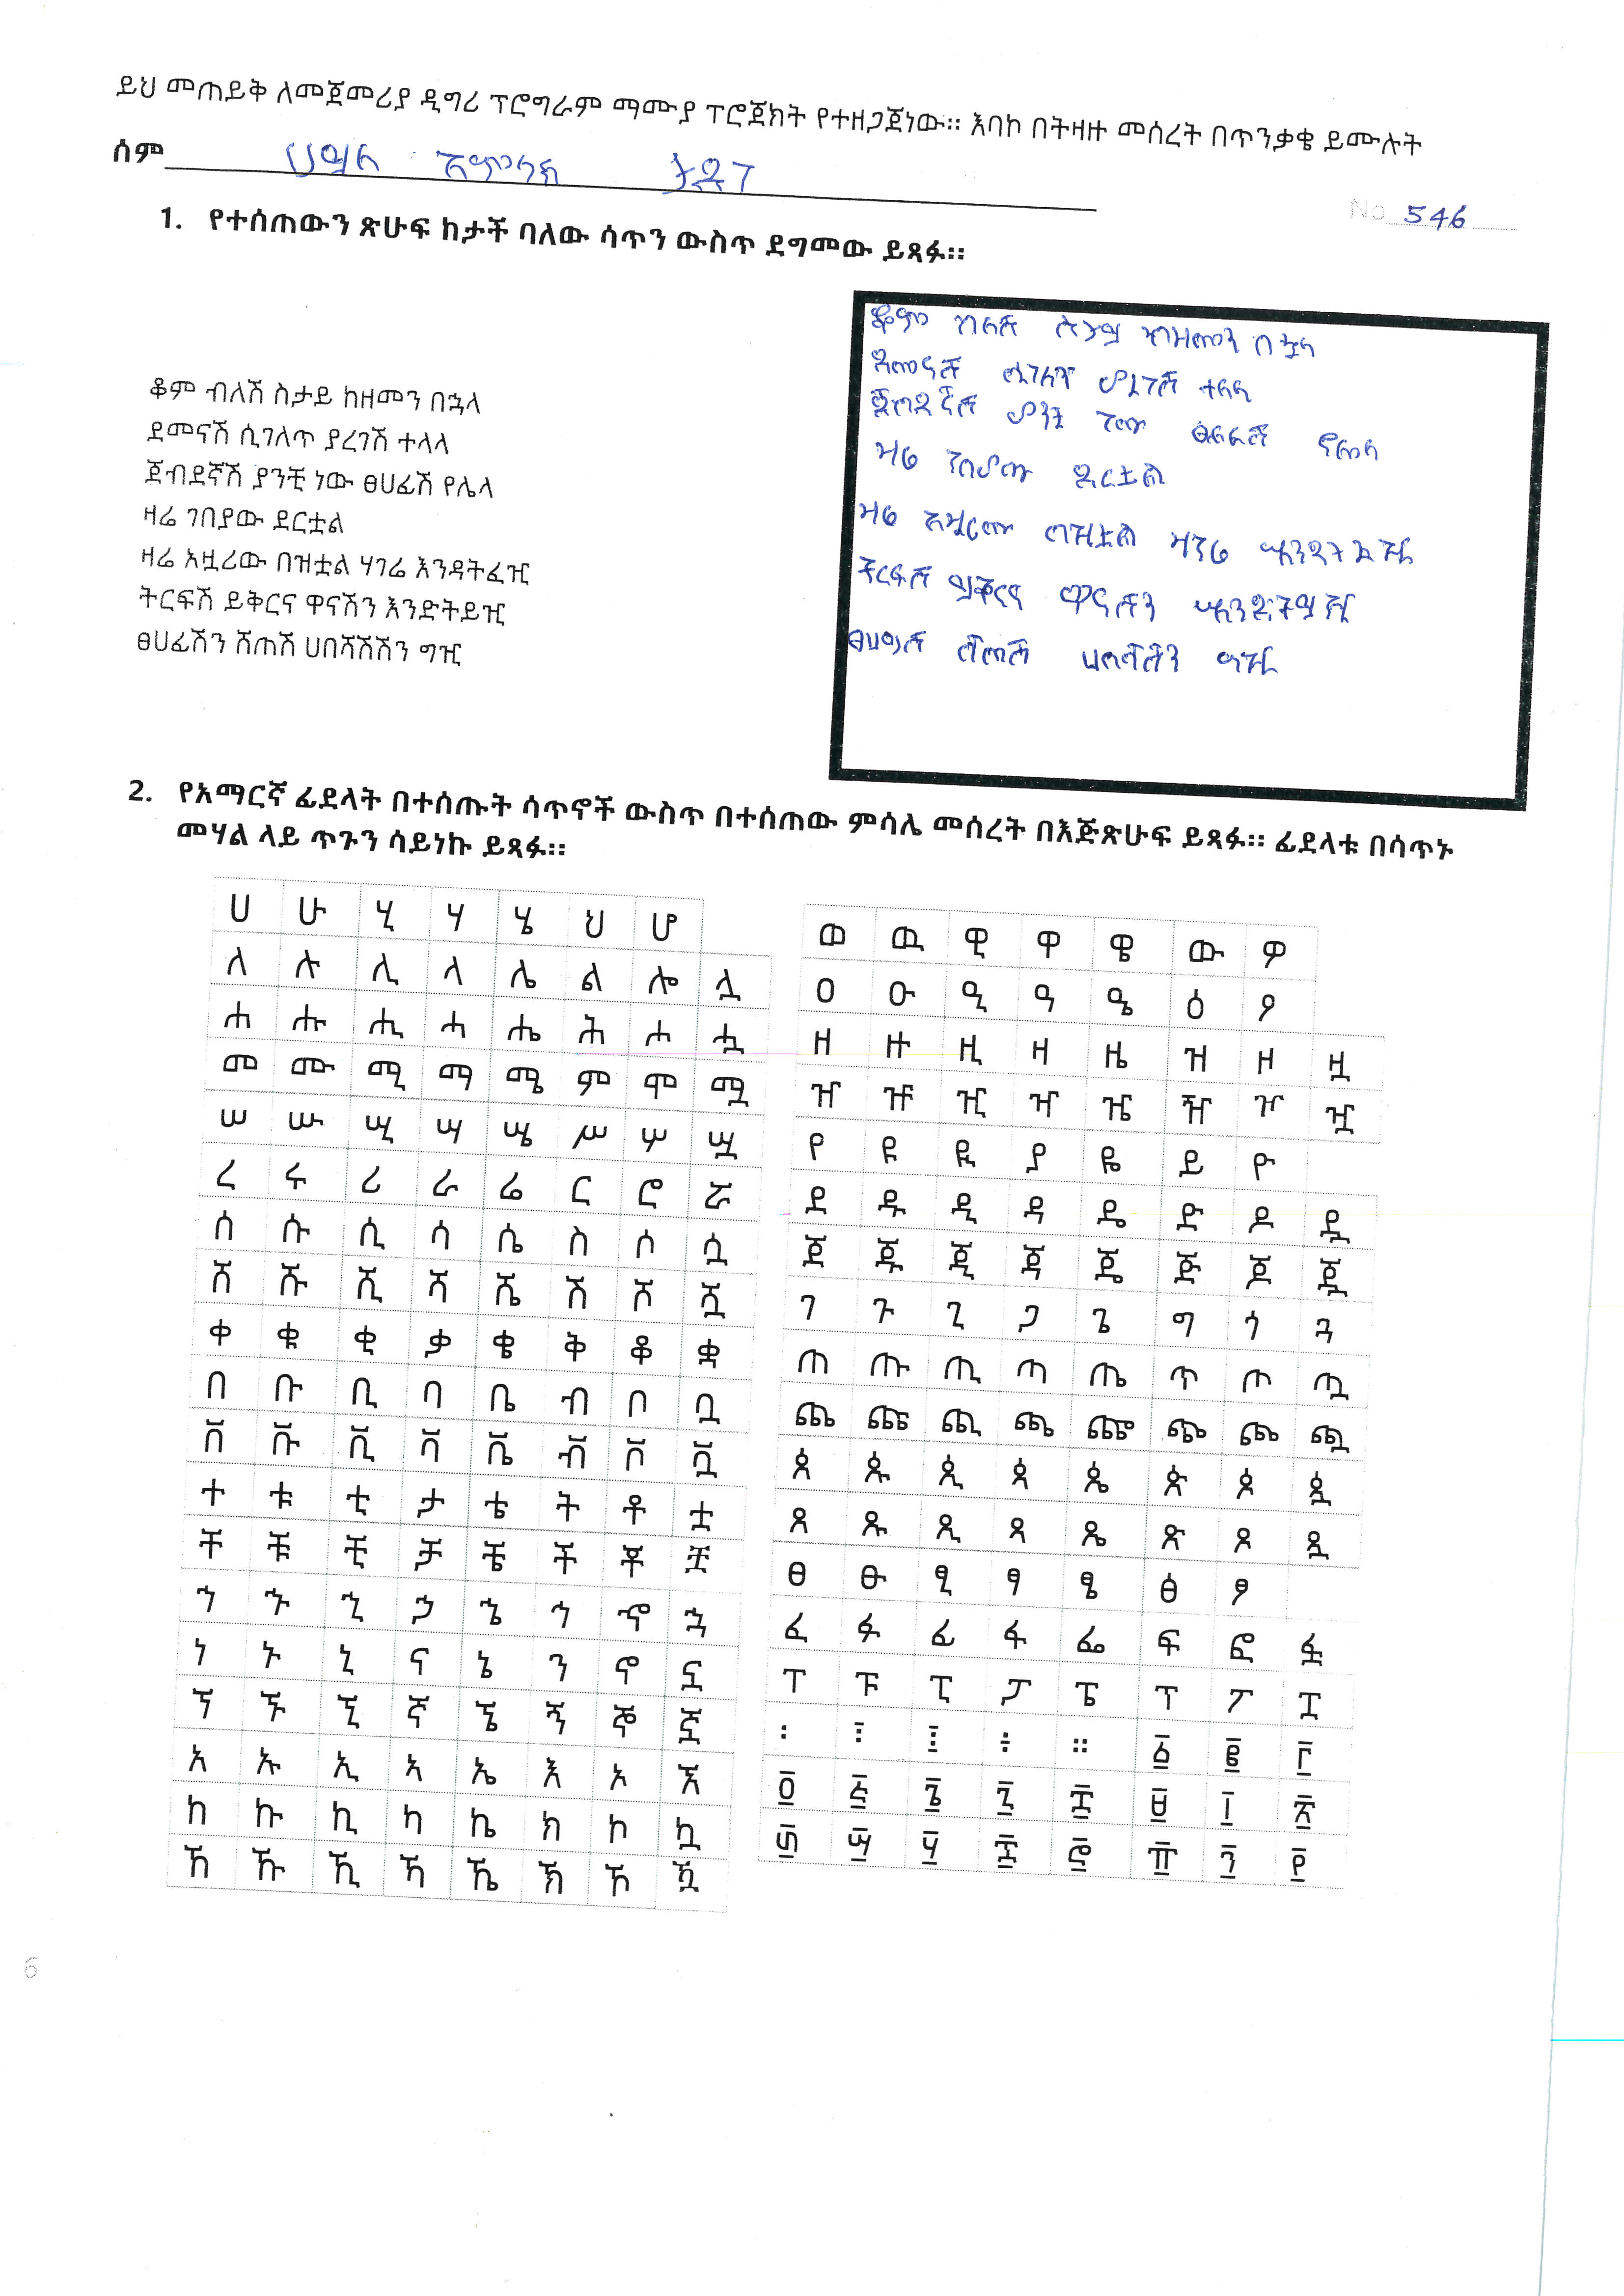 ይህ መጠይቅ ለመጀመሪያ ዲግሪ ፕሮግራም ማሙያ ፕሮጀክት የተዘጋጀነው። እባኮ በትዛዙ መሰረት በጥንቃቄ ይሙሉት
ስም ታደገ
No 546
1. የተሰጠውን ጽሁፍ ከታች ባለው ሳጥን ውስጥ ደግመው ይጻፉ።
ቆም ብለሽ ስታይ ከዘመን በኋላ
ደመናሽ ሲገለጥ ያረገሽ ተላላ
ጀብደኛሽ ያንቺ ነው ፀሀፊሽ የሌላ
ዛሬ ገበያው ደርቷል
ዛሬ አዟሪው በዝቷል ሃገሬ እንዳትፈዢ
ትርፍሽ ይቅርና ዋናሽን እንድትይዢ
ፀሀፊሽን ሽጠሽ ሀበሻሽሽን ግዢ
ቆም ብለሽ ስታይ ከዘመን በኋላ
ደመናሽ ሲገለጥ ያረገሽ ተላላ
ጀብደኛሽ ያንቺ ነው ፀሀፊሽ የሌላ
ዛሬ ገበያው ደርቷል
ዛሬ አዟሪው በዝቷል ሃገሬ እንዳትፈዢ
ትርፍሽ ይቅርና ዋናሽን እንድትይዢ
ፀሀፊሽ ሽጠሽ ሀበሻሽን ግዢ
2. የአማርኛ ፊደላት በተሰጡት ሳጥኖች ውስጥ በተሰጠው ምሳሌ መሰረት በእጅጽሁፍ ይጻፉ። ፊደላቱ በሳጥኑ
መሃል ላይ ጥጉን ሳይነኩ ይጻፉ።
ሀ ሁ ሂ ሃ ሄ ህ ሆ
ለ ሉ ሊ ላ ሌ ል ሎ ሏ
ሐ ሑ ሒ ሓ ሔ ሕ ሖ ሗ
መ ሙ ሚ ማ ሜ ም ሞ ሟ
ሠ ሡ ሢ ሣ ሤ ሥ ሦ ሧ
ረ ሩ ሪ ራ ሬ ር ሮ ሯ
ሰ ሱ ሲ ሳ ሴ ስ ሶ ሷ
ሸ ሹ ሺ ሻ ሼ ሽ ሾ ሿ
ቀ ቁ ቂ ቃ ቄ ቅ ቆ ቋ
በ ቡ ቢ ባ ቤ ብ ቦ ቧ
ቨ ቩ ቪ ቫ ቬ ቭ ቮ ቯ
ተ ቱ ቲ ታ ቴ ት ቶ ቷ
ቸ ቹ ቺ ቻ ቼ ች ቾ ቿ
ኀ ኁ ኂ ኃ ኄ ኅ ኆ ኋ
ነ ኑ ኒ ና ኔ ን ኖ ኗ
ኘ ኙ ኚ ኛ ኜ ኝ ኞ ኟ
አ ኡ ኢ ኣ ኤ እ ኦ ኧ
ከ ኩ ኪ ካ ኬ ክ ኮ ኳ
ኸ ኹ ኺ ኻ ኼ ኽ ኾ ዃ
ወ ዉ ዊ ዋ ዌ ው ዎ
ዐ ዑ ዒ ዓ ዔ ዕ ዖ
ዘ ዙ ዚ ዛ ዜ ዝ ዞ ዟ
ዠ ዡ ዢ ዣ ዤ ዥ ዦ ዧ
የ ዩ ዪ ያ ዬ ይ ዮ
ደ ዱ ዲ ዳ ዴ ድ ዶ ዷ
ጀ ጁ ጂ ጃ ጄ ጅ ጆ ጇ
ገ ጉ ጊ ጋ ጌ ግ ጎ ጓ
ጠ ጡ ጢ ጣ ጤ ጥ ጦ ጧ
ጨ ጩ ጪ ጫ ጬ ጭ ጮ ጯ
ጰ ጱ ጲ ጳ ጴ ጵ ጶ ጷ
ጸ ጹ ጺ ጻ ጼ ጽ ጾ ጿ
ፀ ፁ ፂ ፃ ፄ ፅ ፆ
ፈ ፉ ፊ ፋ ፌ ፍ ፎ ፏ
ፐ ፑ ፒ ፓ ፔ ፕ ፖ ፗ
፡ ፤ ፥ ፣ ። ፩ ፪ ፫
፬ ፭ ፮ ፯ ፰ ፱ ፲ ፳
፴ ፵ ፶ ፷ ፸ ፹ ፺ ፻
6